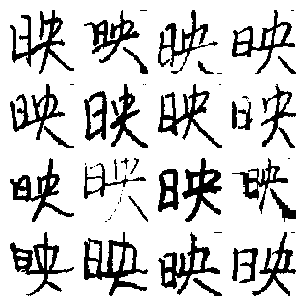 映映映映
映映映映
映映映映
映映映映